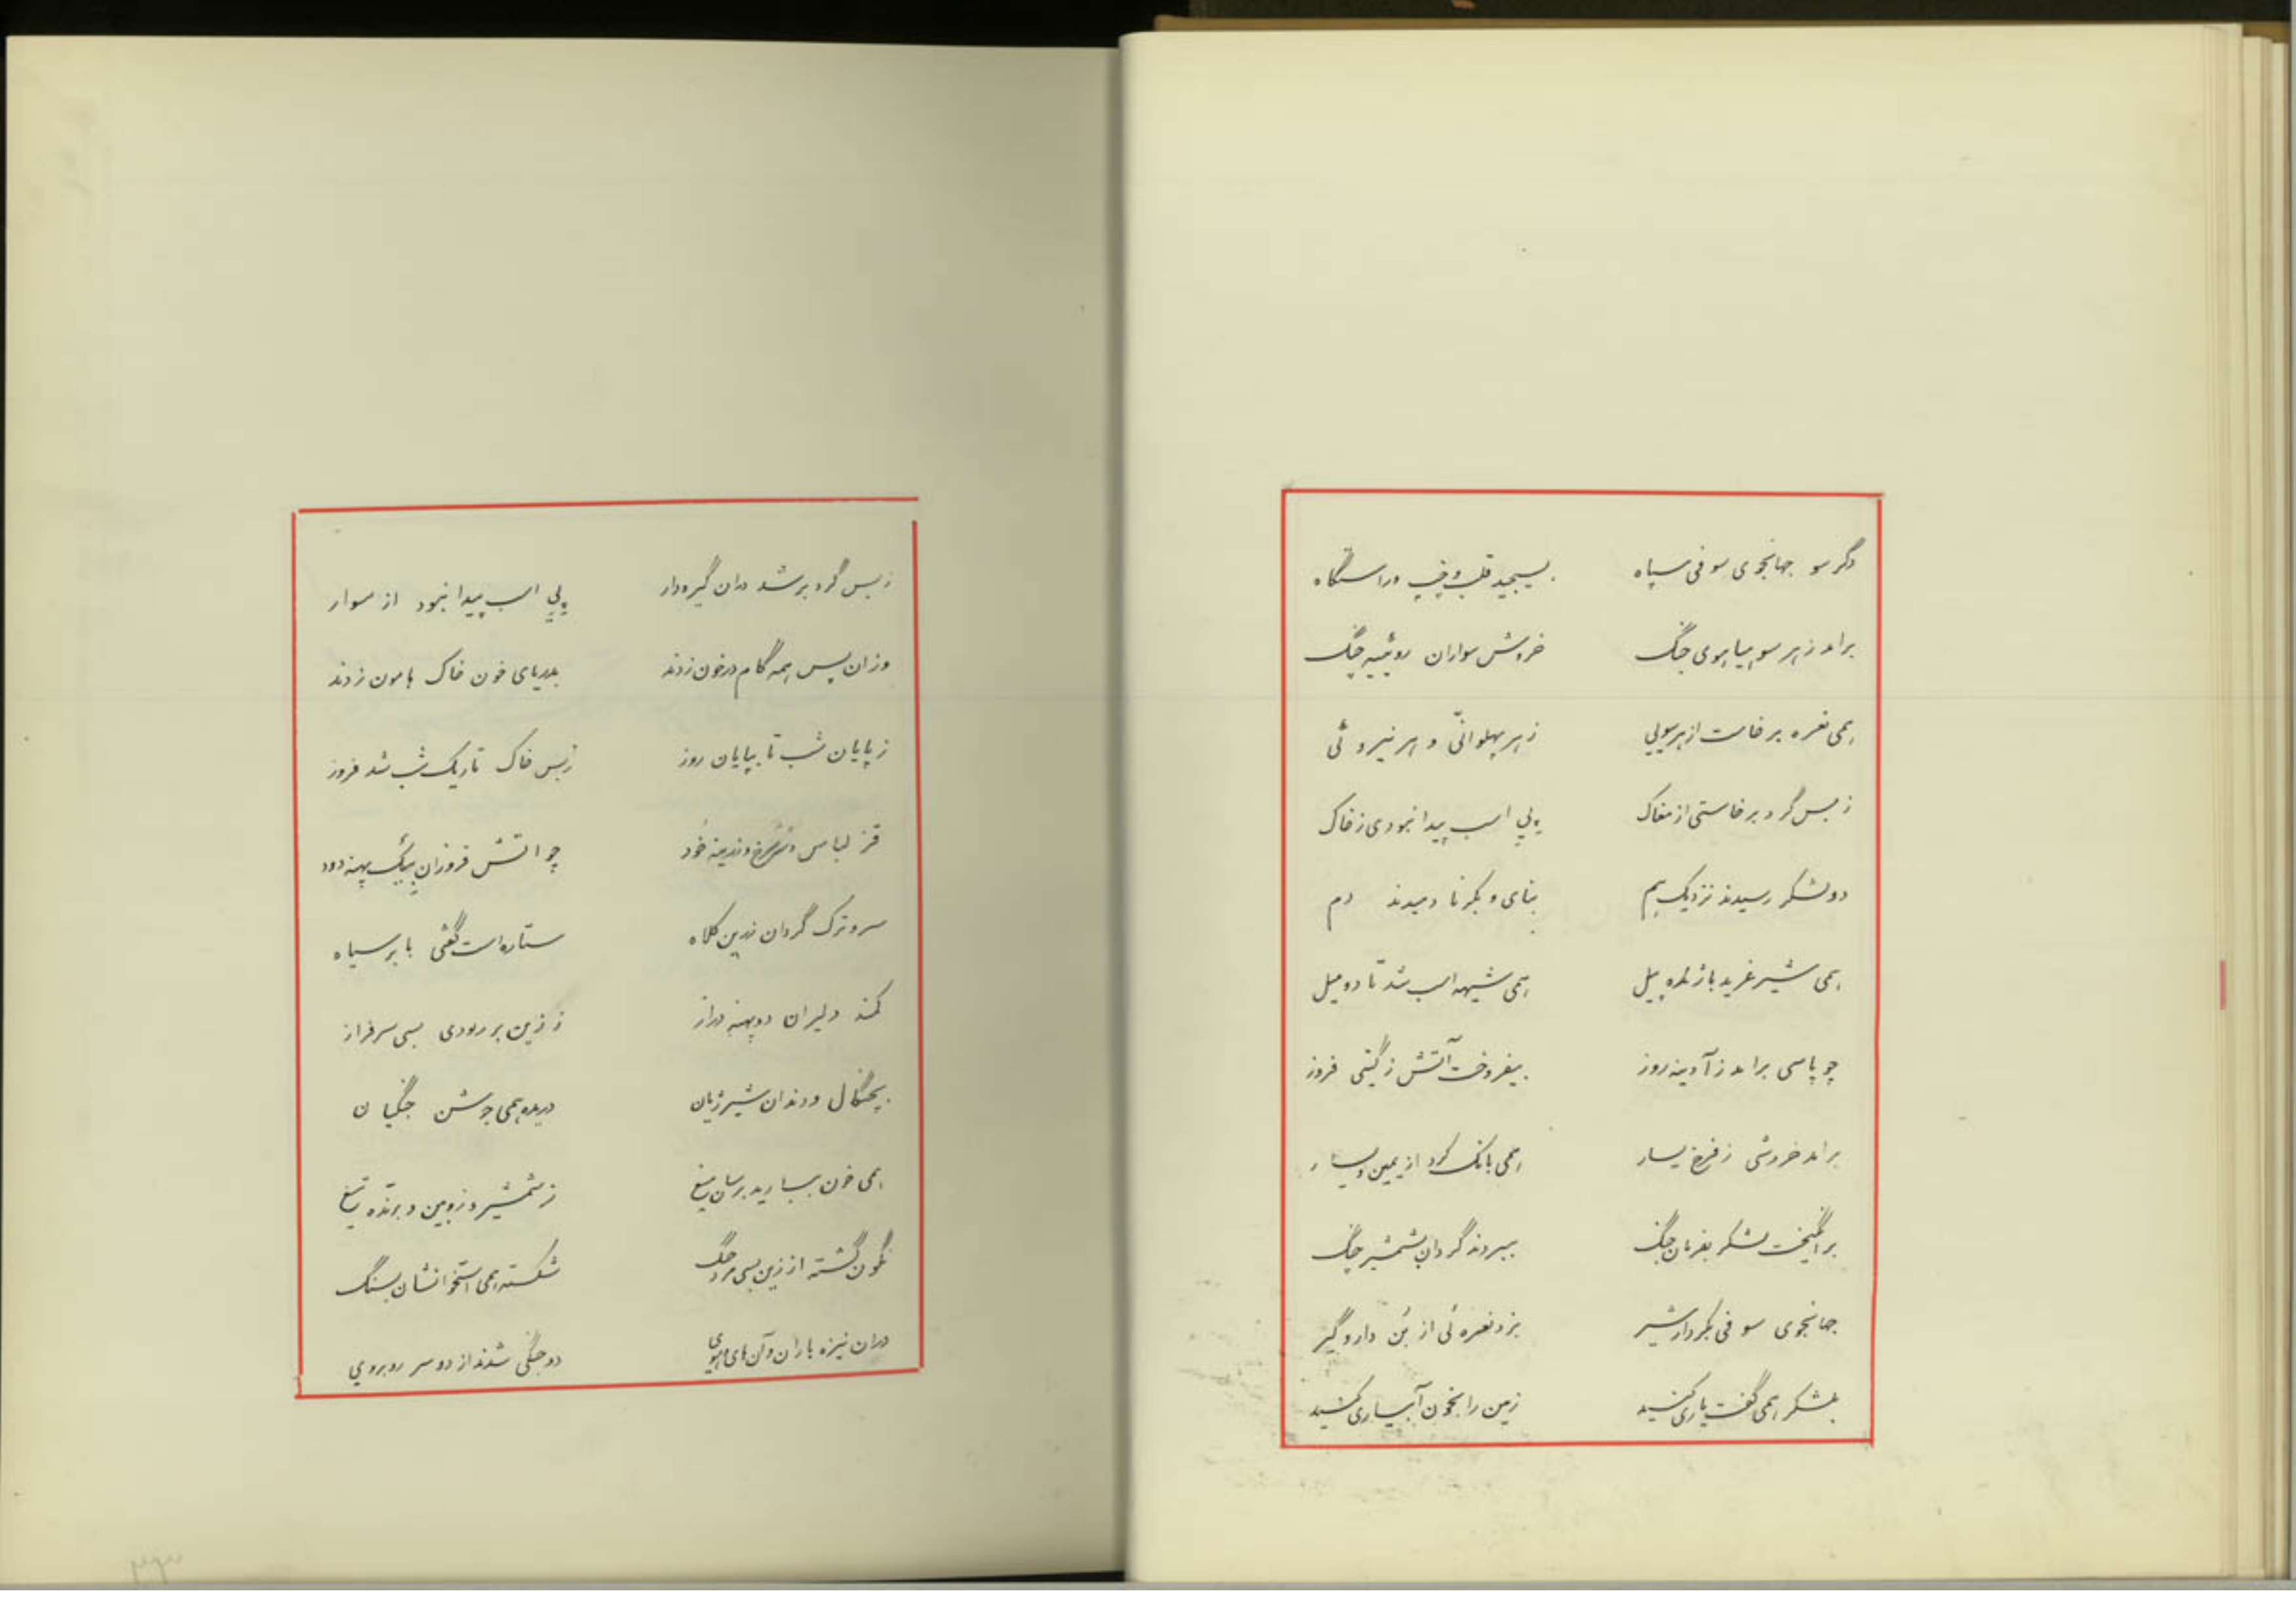 دگر سو جهانجوی سوفی سپاه بسیجید قلب و چپ و راستگاه
برامد ز هر سو هیاهوی جنگ خروش سواران روئینه چنگ
همی نعره برخاست از هر سویی ز هر پهلوانی و هر نیروئی
ز بس گرد برخاستی از مغاک پی اسب پیدا نبودی ز خاک
دو لشکر رسیدند نزدیک هم بنای و بکرنا دمیدند دم
همی شیر غرید با ژنده پیل همی شیهه اسب شد تا دو میل
چو پاسی برامد ز آدینه روز بیفروخت آتش ز گیتی فروز
برامد خروشی ز فرخ یسار همی بانک کرد از یمین و یسار
برانگیخت لشکر بفرمان جنگ ببردند گردان بشمشیر چنگ
جهانجوی سوفی بکردار شیر بزد نعره ئی از بُن دار و گیر
بلشکر همی گفت یاری کنید زمین را بخون آبیاری کنید
ز بس گرد بر شد دران گیرودار پی اسب پیدا نبود از سوار
وزان پس همه گام در خون زدند بدریای خون خاک هامون زدند
ز پایان شب تا بپایان روز ز بس خاک تاریک شب شد فروز
قز لباس سرخ و زرینه خُود چو اتش فروزان بیک پهنه دود
سر و ترک گردان زرین کلاه ستاره است گفتی بابر سیاه
کمند دلیران دو پهنه دراز ز زین بر ربودی بسی سرفراز
بچنگال و دندان شیر ژیان دریده همی جوشن جنگیان
همی خون ببارید بر سان میغ ز شمشیر و زوبین و برّنده تیغ
نگون گشته از زین بسی مرد جنگ شکسته همی استخوانشان بسنگ
دران نیزه باران و آن های و هوی دو جنگی شدند از دو سر روبروی